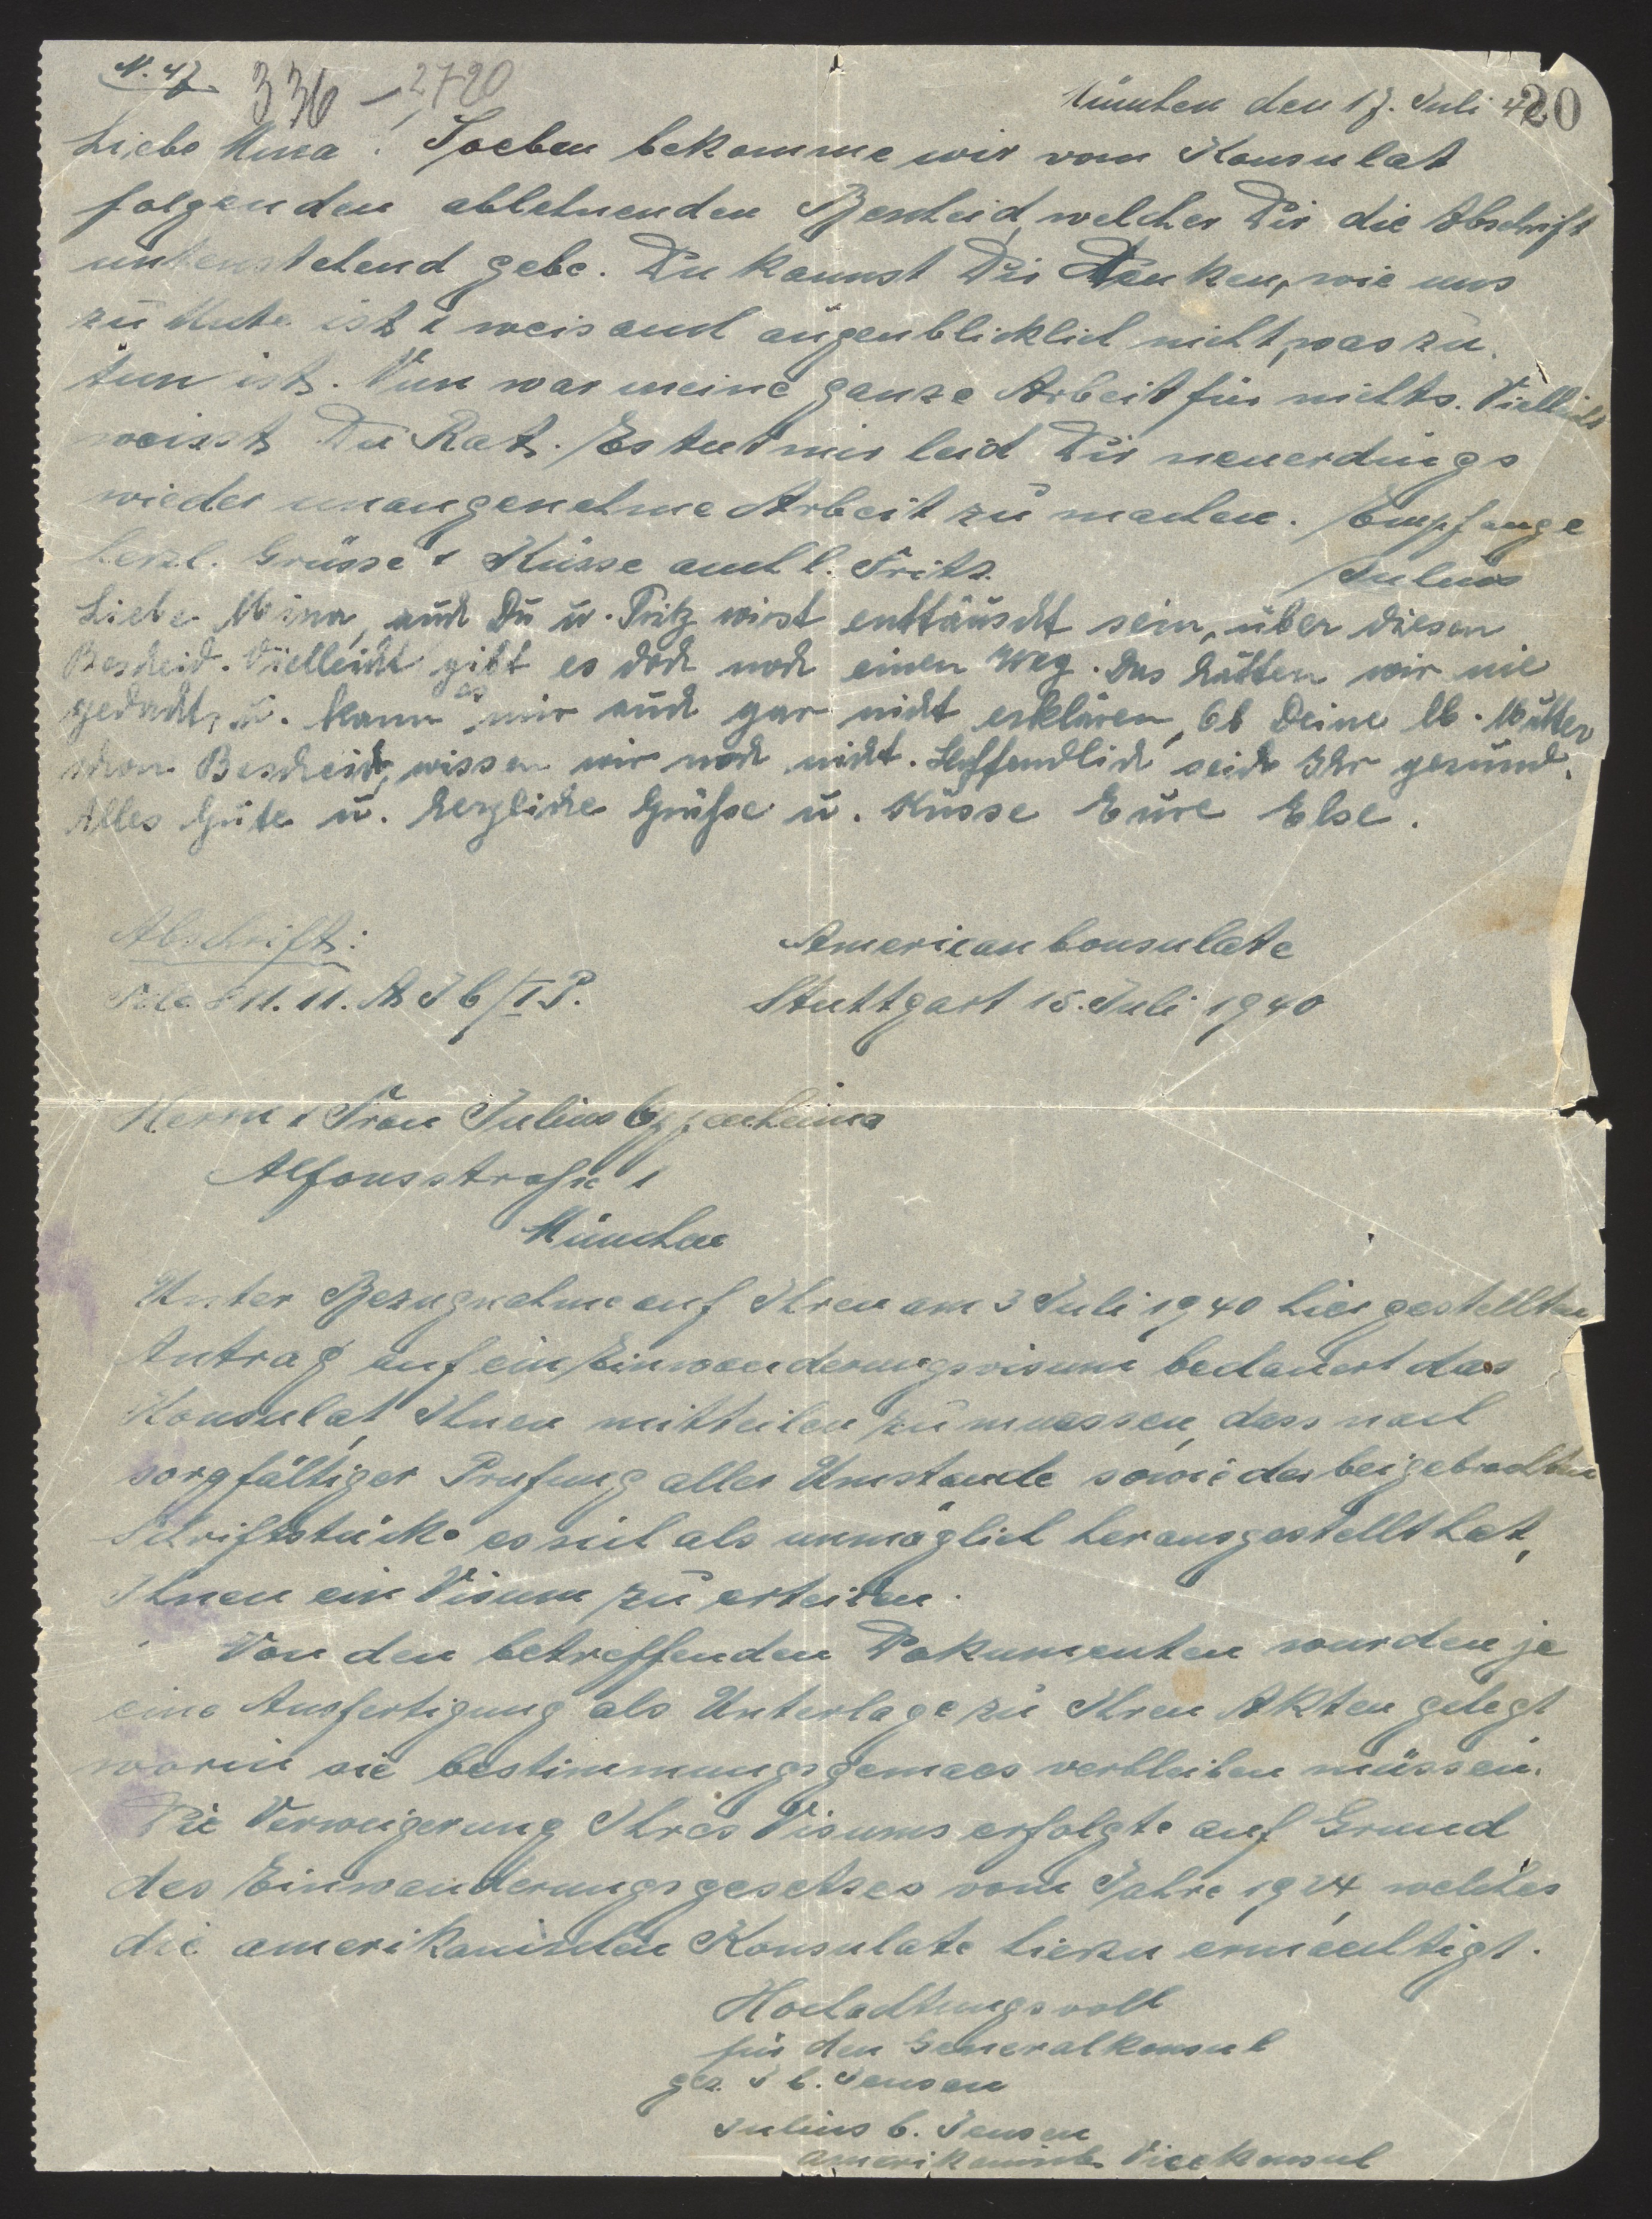 N. 47.
336 – 2720
München den 17. Juli 40
20
Liebe Mina! Soeben bekomme wir vom Konsulat
folgenden ablehnenden Bescheid, welcher Dir die Abschrift
untenstehend gebe. Du kannst Dir Denken, wie uns
zu Mute ist & weis auch augenblicklich nicht, was zu
tun ist. Nun war meine ganze Arbeit für nichts. Vielleicht
weisst Du Rat. Es tut mir leid Dir neuerdings
wieder unangenehme Arbeit zu machen. Empfange
herzl. Grüsse & Küsse auch l. Fritz
Julius
Liebe Mina, auch Du u. Fritz wirst enttäuscht sein, über diesen
Bescheid. Vielleicht gibt es doch noch einen Weg. Das hätten wir nie
gedacht, u. kann es mir auch gar nicht erklären, ob Deine lb. Mutter
schon Bescheid, wissen wir noch nicht. Hoffendlich seid Ihr gesund.
Alles Gute u. herzliche Grüße u. Küsse Eure Else.
Abschrift:
American Consulate
File 811.11. A J C/I.P.
Stuttgart 15. Juli 1940
Herrn & Frau Julius Oppenheimer
Alfonsstraße 1
München
Unter Bezugnahme auf Ihren am 3 Juli 1940 hier gestellten
Antrag auf ein Einwanderungsvisum bedauert das
Konsulat, Ihnen mitteilen zu muessen, dass nach
sorgfältiger Prufung aller Umstaende sowie der beigebrachten
Schriftstücke es sich als unmöglich herausgestellt hat,
Ihnen ein Visum zu erteilen.
Von den betreffenden Dokumenten wurden je
eine Ausfertigung als Unterlage zu Ihren Akten gelegt
worin sie bestimmungsgemaes verbleiben müssen.
Die Verweigerung Ihres Visums erfolgte auf Grund
des Einwanderungsgesetzes vom Jahre 1924, welches
die amerikanischen Konsulate hierzu ermächtigt.
Hochachtungsvoll
für den Generalkonsul
gez. J C. Jensen
Julius C. Jensen
amerikanischer Vicekonsul